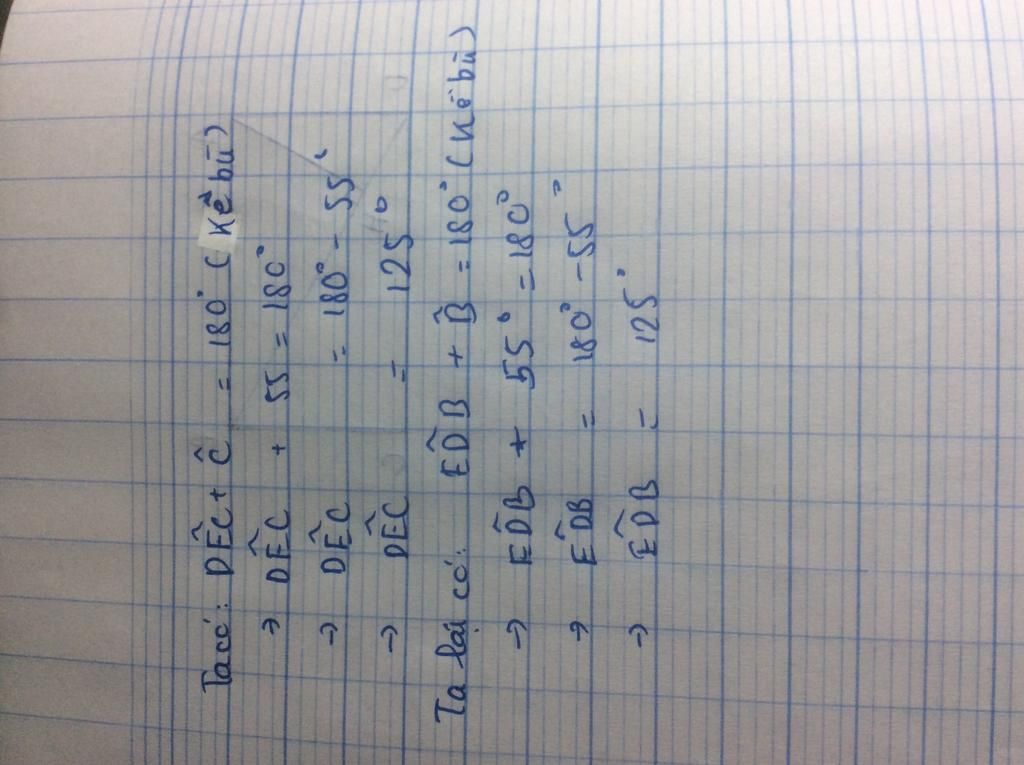 Ta có: DÊC + Ĉ = 180° ( Kề bù )
→ DÊC + 55 = 180°
→ DÊC = 180° - 55°
→ DÊC = 125°
Ta lại có: ED̂B + B̂ = 180° ( Kề bù )
→ ED̂B + 55° = 180°
→ ED̂B = 180° - 55°
→ ED̂B = 125°